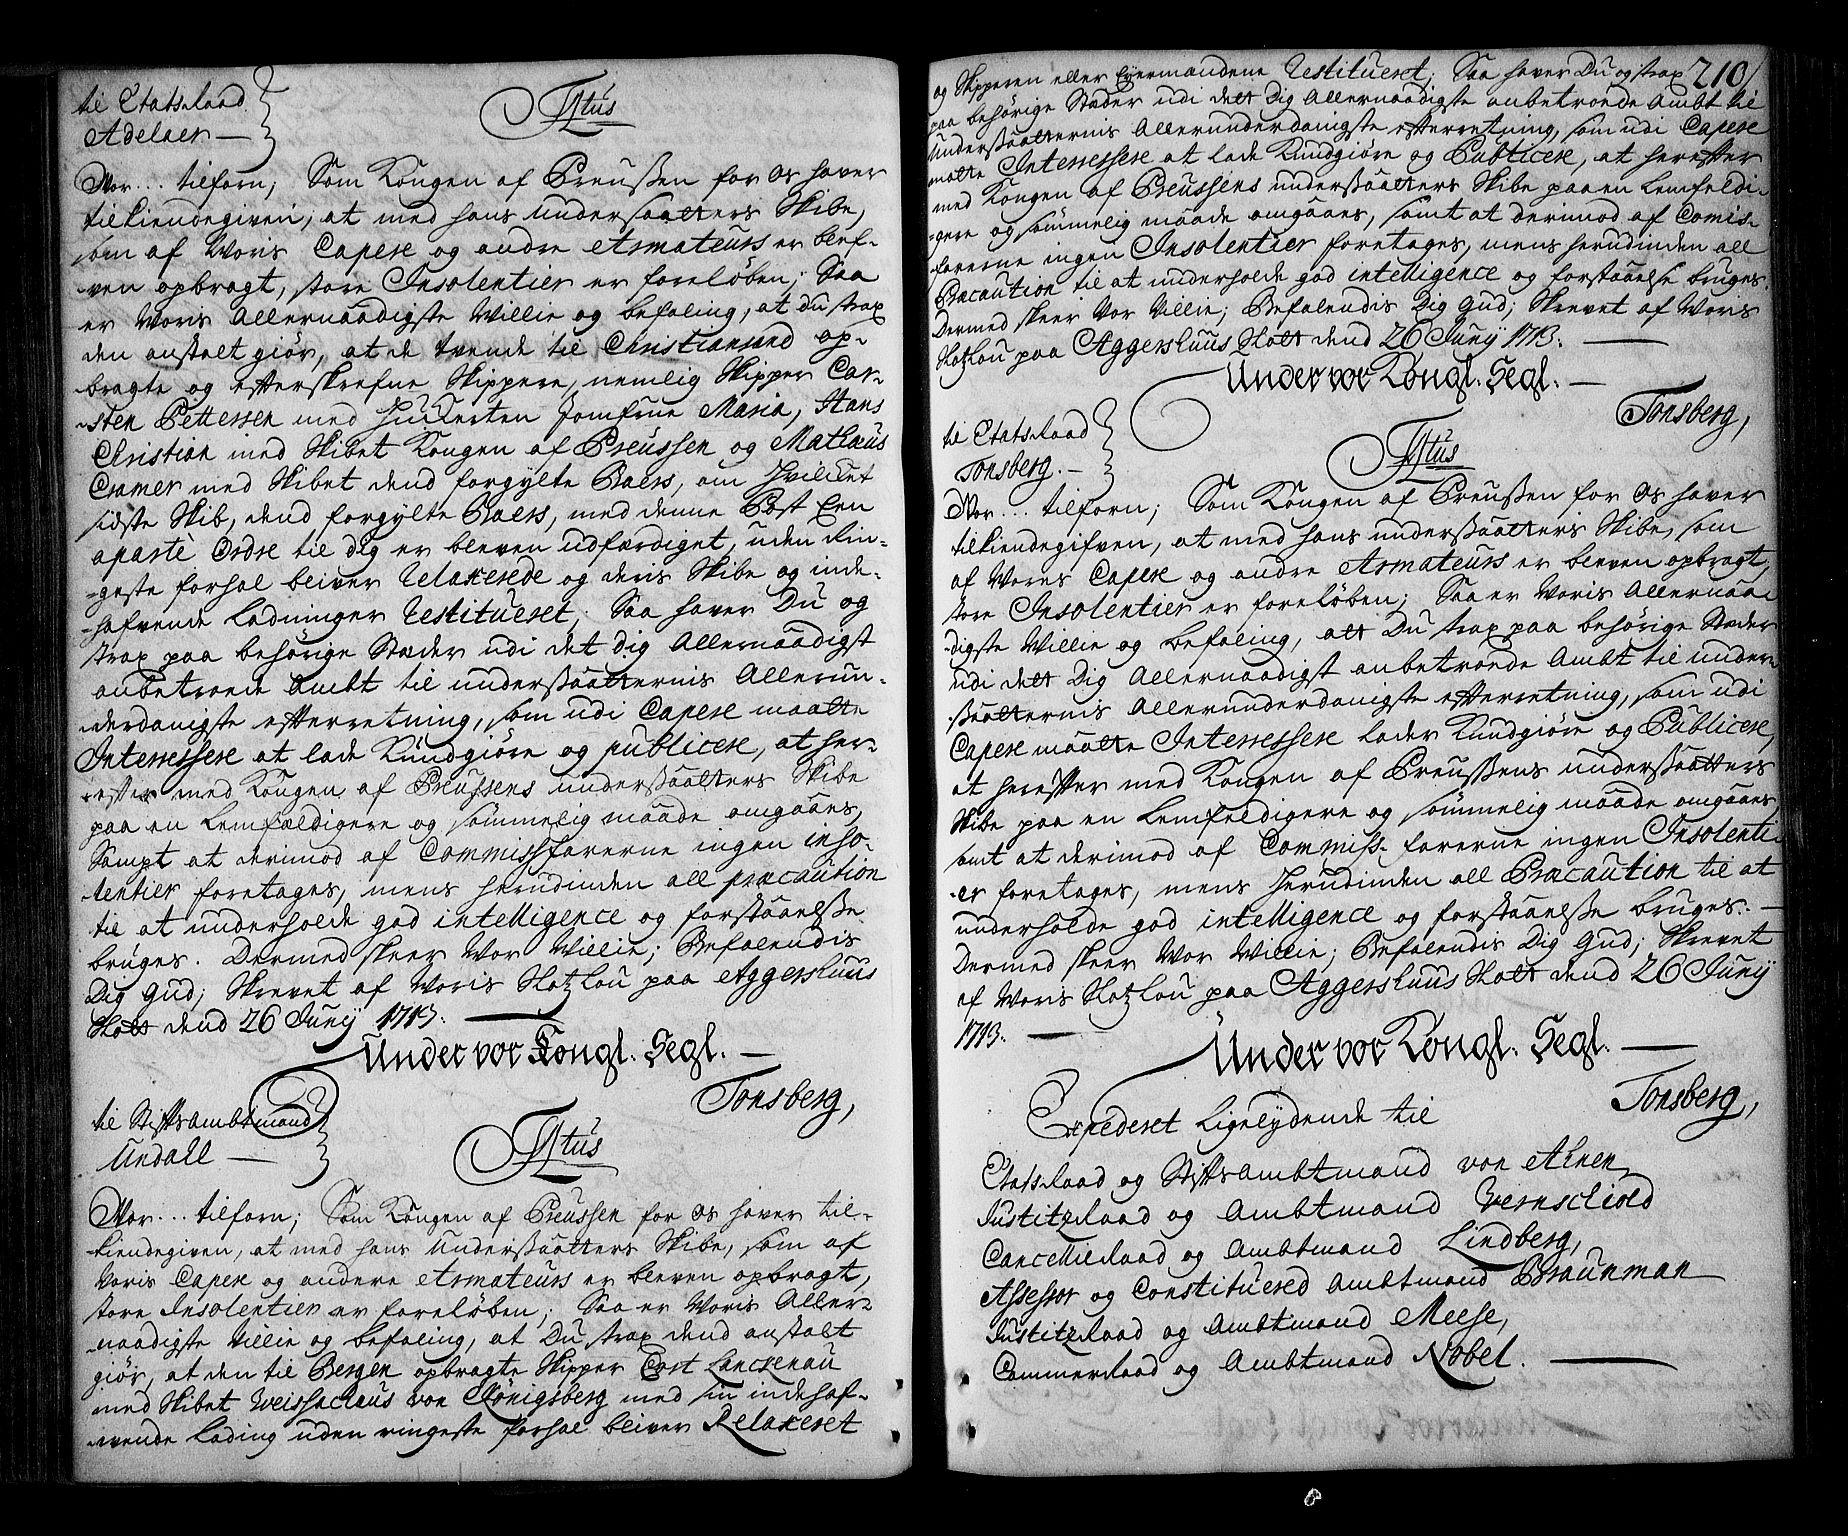 til Etatsraad
Adelaer —
Titus
Vor... tilforn; Som Kongen af Preussen for Os haver
tilkiendegiven, at med hans undersaatters Skibe,
som af Voris Capere og andre Armateurs er blef-
ven opbragt, store Insolentier er foreløben; Saa
er Voris Allernaadigste Villie og befaling, at Du strax
den anstalt giør, at de tvende til Christiansand op-
bragte og efterskrefne Skippere, nemlig Skipper Car-
sten Pettersen med Huckerten Jomfrue Maria, Hans
Christian med Skibet Kongen af Preussen og Mathæus
Cramer med Skibet dend forgylte Baers, om hvilcket
sidste Skib, dend forgylte Baers, med denne Post Een
aparte Ordre til dig er bleven udfærdiget, uden Rin-
geste forhal bliver Relaxerede og deris Skibe og inde-
hafvende Ladninger Restitueret; Saa haver Du og
strax paa behørige Stæder udi det Dig Allernaadigst
anbetroede Ambt til undersaatternis Allerun-
derdanigste efterretning, som udi Capere maatte
Interressere at lade Kundgiøre og publicere, at her-
efter med Kongen af Preussens undersaatters Skibe
paa en Lemfældigere og sømmelig maade omgaaes,
Sampt at derimod af Commissfarerne ingen inso-
lentier foretages, mens herudinden all præcaution
til at underholde god intelligence og forstaaelse
bruges. Dermed skeer Vor Villie; Befalendis
Dig Gud; Skrevet af Voris Slotzlou paa Aggershuus
Slott dend 26 Juny 1713.
Under vor Kongl. Segl. —
Tonsberg,
til Stiftsambtmand
Undall —
Titus
Vor... tilforn; Som Kongen af Preussen for Os haver til-
kiendegiven, at med hans Undersaatters Skibe, som af
Voris Capere og andere Armateurs er bleven opbragt,
store Insolentier er foreløben; Saa er Voris Aller-
naadigste Villie og befaling, at Du strax dend anstalt
giør, at den til Bergen opbragte Skipper Cost Lanckenau
med Skibet Weissaclaus von Königsberg med sin indehaf-
vende Lading uden ringeste forhal bliver Relaxeret
210/
og Skipperen eller Eyermandene Restitueret; Saa haver Du og strax
paa behørige Stæder udi dett Dig Allernaadigste anbetroede Ambt til
Undersaatternis Allerunderdanigste efterretning, som udi Capere
matte Interressere at lade Kundgiøre og Publicere, at herefter
med Kongen af Preussens undersaatters Skibe paa en Lemfeldi-
gere og sømmelig maade omgaaes, samt at derimod af Comis-
farerne ingen Insolentier foretages, mens herudinden all
Præcaution til at underholde god intelligence og forstaaelse bruges.
Dermed skeer Vor Villie; Befalendis Dig Gud; Skrevet af Voris
Slotzlou paa Aggershuus Slott dend 26 Juny 1713. —
Under vor Kongl. Segl. —
Tonsberg,
til Etatsraad
Tonsberg. —
Titus
Vor... tilforn; Som Kongen af Preussen for Os haver
tilkiendegifven, at med hans undersaatteris Skibe, som
af Vores Capere og andre Armateurs er bleven opbragt,
store Insolentier er foreløben; Saa er Voris Allernaa-
digste Villie og befaling, att Du strax paa behørige Stæder
udi dett Dig Allernaadigst anbetroede Ambt til under-
saatternis Allerunderdanigste efterretning, som udi
Capere maatte Interressere lader Kundgiøre og Publicere,
at herefter med Kongen af Preussens undersaatters
Skibe paa en Lemfeldigere og sømmelig maade omgaaes,
samt at derimod af Commiss-farerne ingen Insolenti-
er foretages, mens herudinden all Præcaution til at
underholde god intelligence og forstaaelse bruges. —
Dermed skeer Vor Villie; Befalendis Dig Gud; Skrevet
af Voris Slotzlou paa Aggershuus Slott dend 26 Juny
1713. —
Under vor Kongl. Segl. —
Tonsberg,
Expederet Ligelydende til
Etatsraad og Stiftsambtmand von Ahnen
Justitzraad og Ambtmand Vernschiold
Cancellieraad og Ambtmand Lindberg,
Assessor og Constituered Ambtmand Braunman
Justitzraad og Ambtmand Meese,
Commerceraad og Ambtmand Nobel. —